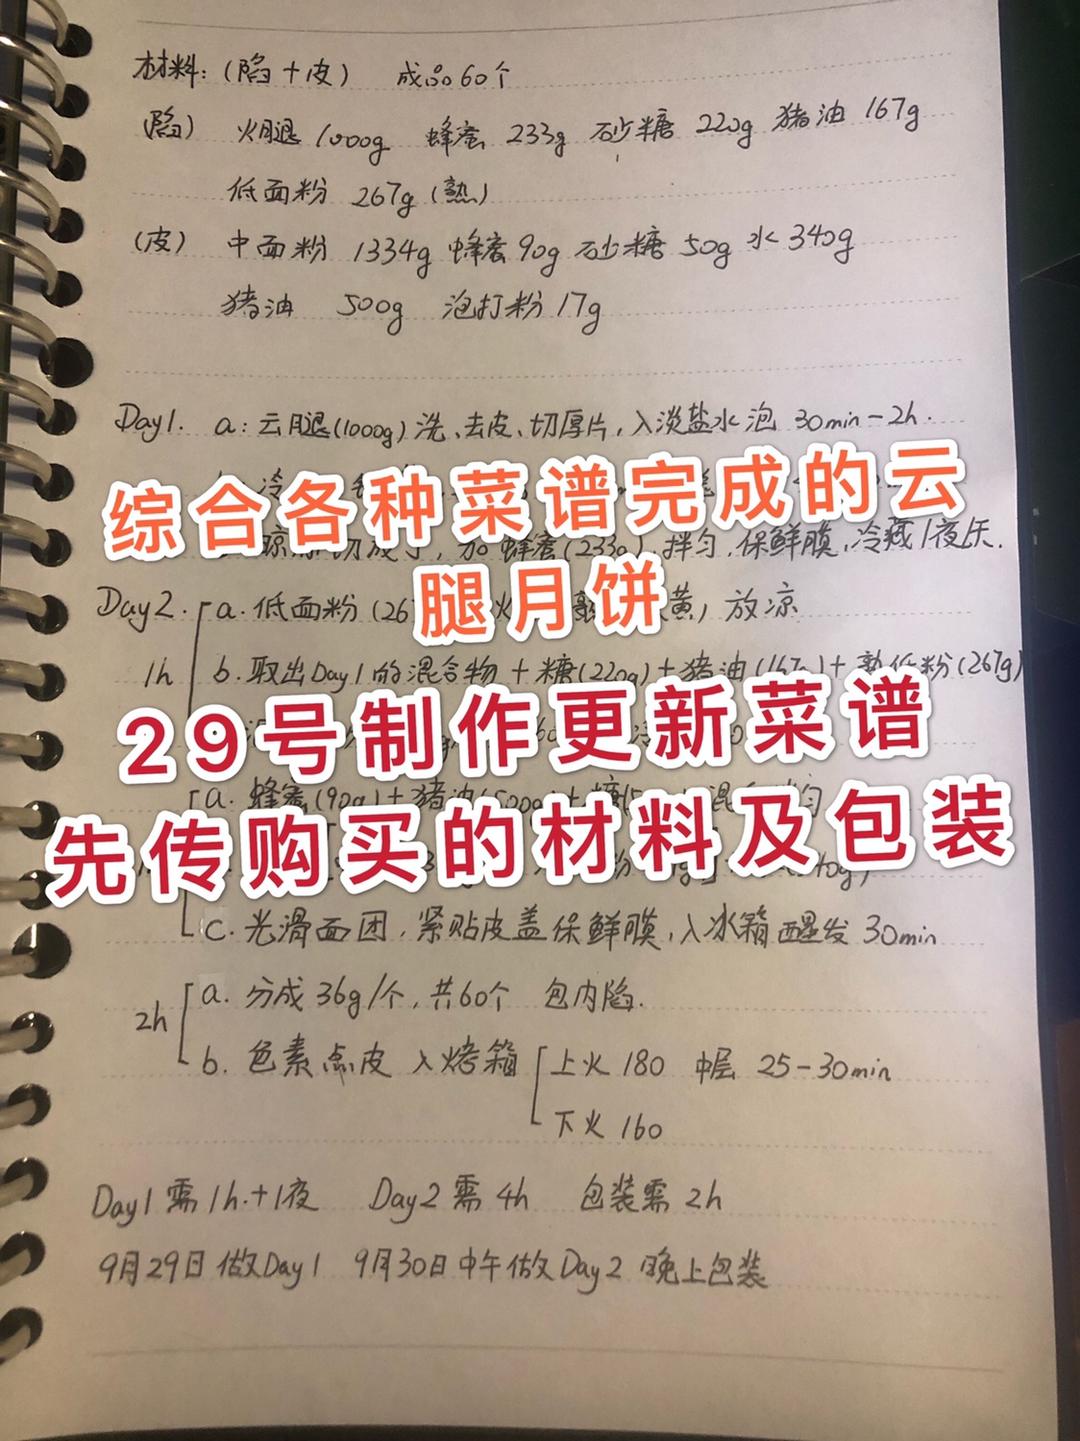 材料:(陷+皮) 成品60个
(陷) 火腿 1000g 蜂蜜 233g 砂糖 220g 猪油 167g
低面粉 267g(熟)
(皮) 中面粉 1334g 蜂蜜90g 砂糖 50g 水340g
猪油 500g 泡打粉 17g
Day1. a:云腿(1000g)洗、去皮、切厚片,入淡盐水泡 30min-2h.
综合各种菜谱完成的云
切成丁,加蜂蜜(233g)拌匀.保鲜膜,冷藏1夜
腿月饼
Day2. a.低面粉(26 黄)放凉
1h b.取出Day1的混合物+糖(220g)+猪油(167g)+熟低粉(267g)
29号制作更新菜谱
a. 蜂蜜(90g)+猪油(500g)+糖
先传购买的材料及包装
c.光滑面团,紧贴皮盖保鲜膜,入冰箱醒发30min
2h a.分成36g/个,共60个 包内陷.
b.色素点皮 入烤箱 上火180 中层 25-30min
下火160
Day1需1h.+1夜 Day2需4h 包装需2h
9月29日做Day1 9月30日中午做Day2 晚上包装